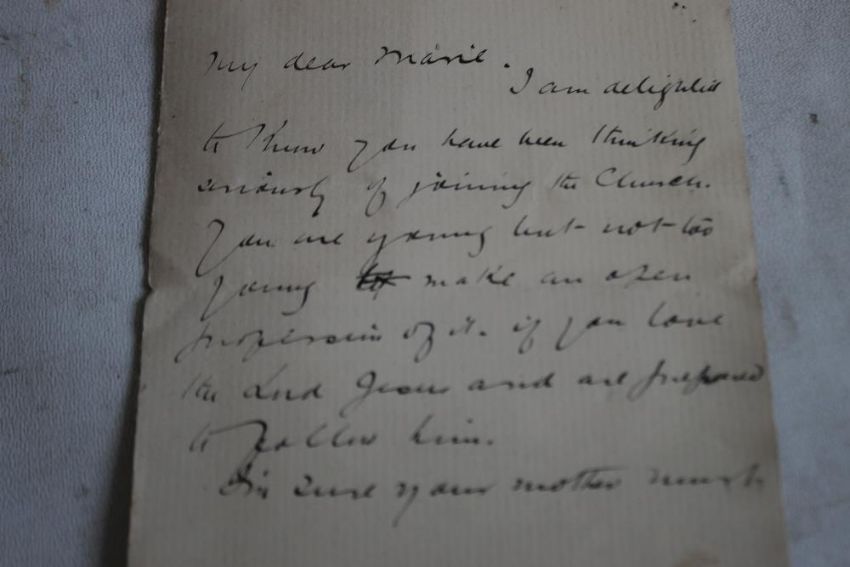 My dear Marie.
I am delighted
to know you have been thinking
seriously of joining the Church.
You are young but not too
young to make an open
profession of it. if you love
the Lord Jesus and are prepared
to follow him.
I'm sure your mother must